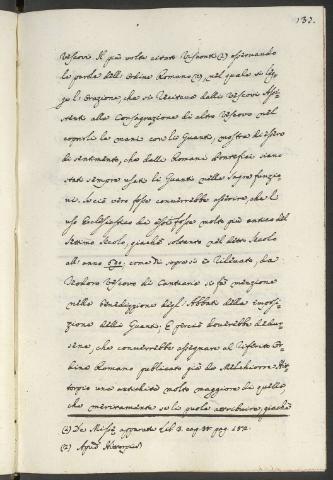 133.
Vescovi. Il più volte citato Visconti (1) osservando
le parole dell'Ordine Romano (2), nel quale si leg-
ge l'orazione, che si recitava dalli Vescovi Assi-
stenti alla Consagrazione di altro Vescovo nel
coprirli le mani con li Guanti, mostra di essere
di sentimento, che dalli Romani Pontefici siano
stati sempre usati li Guanti nelle Sagre funzio-
ni. Se ciò vero fosse converrebbe asserire, che l'
uso Ecclesiastico di essi fosse molto più antico del
Settimo Secolo, giachè soltanto nel detto Secolo
all'anno come di sopra si è rilevato, da
Teodoro Vescovo di Cantuaria si fà menzione
nella benedizzione degl'Abbati della imposi-
zione delli Guanti; E perciò
che converrebbe assegnare al riferito Or-
dine Romano publicato già da Melchiorre Hit-
torpio una antichità molto maggiore di quella,
che meritamente se li puole attribuire, giachè
(1) De Miss. apparatu Lib. 3. cap. pag. 182.
(2) Apud Hittorpium